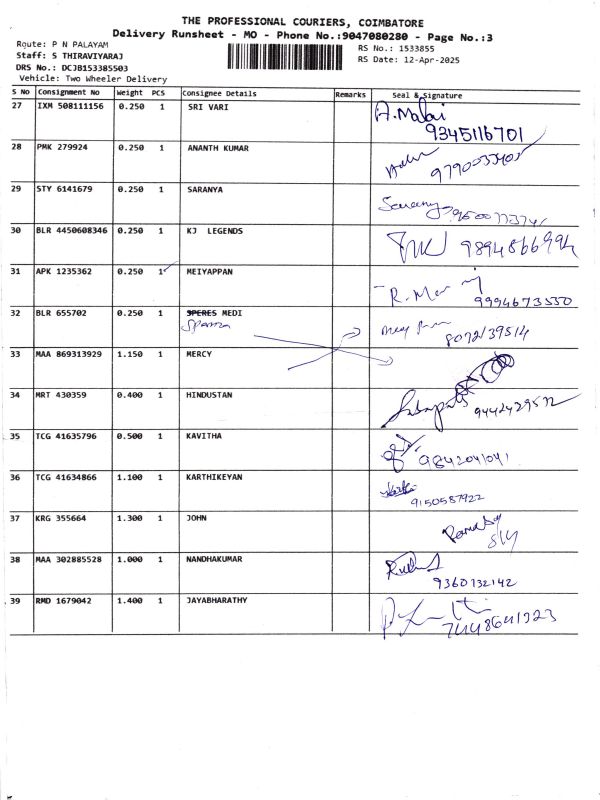 THE PROFESSIONAL COURIERS, COIMBATORE
Delivery Runsheet - MO - Phone No.:9047080280 - Page No.:3
Route: P N PALAYAM
RS No.: 1533855
Staff: S THIRAVIYARAJ
RS Date: 12-Apr-2025
DRS No.: DCJB153385503
Vehicle: Two Wheeler Delivery
S No Consignment No Weight PCS Consignee Details Remarks Seal & Signature
27 IXM 508111156 0.250 1 SRI VARI A. Malai
9345116701
28 PMK 279924 0.250 1 ANANTH KUMAR
29 STY 6141679 0.250 1 SARANYA Saranya
30 BLR 4450608346 0.250 1 KJ LEGENDS 9894866994
31 APK 1235362 0.250 1 MEIYAPPAN R.
9994673550
32 BLR 655702 0.250 1 SPERES MEDI
8072139514
33 MAA 869313929 1.150 1 MERCY
34 MRT 430359 0.400 1 HINDUSTAN
9442429572
35 TCG 41635796 0.500 1 KAVITHA
9842041041
36 TCG 41634866 1.100 1 KARTHIKEYAN
9150587922
37 KRG 355664 1.300 1 JOHN
38 MAA 302885528 1.000 1 NANDHAKUMAR
9360732142
39 RMD 1679042 1.400 1 JAYABHARATHY